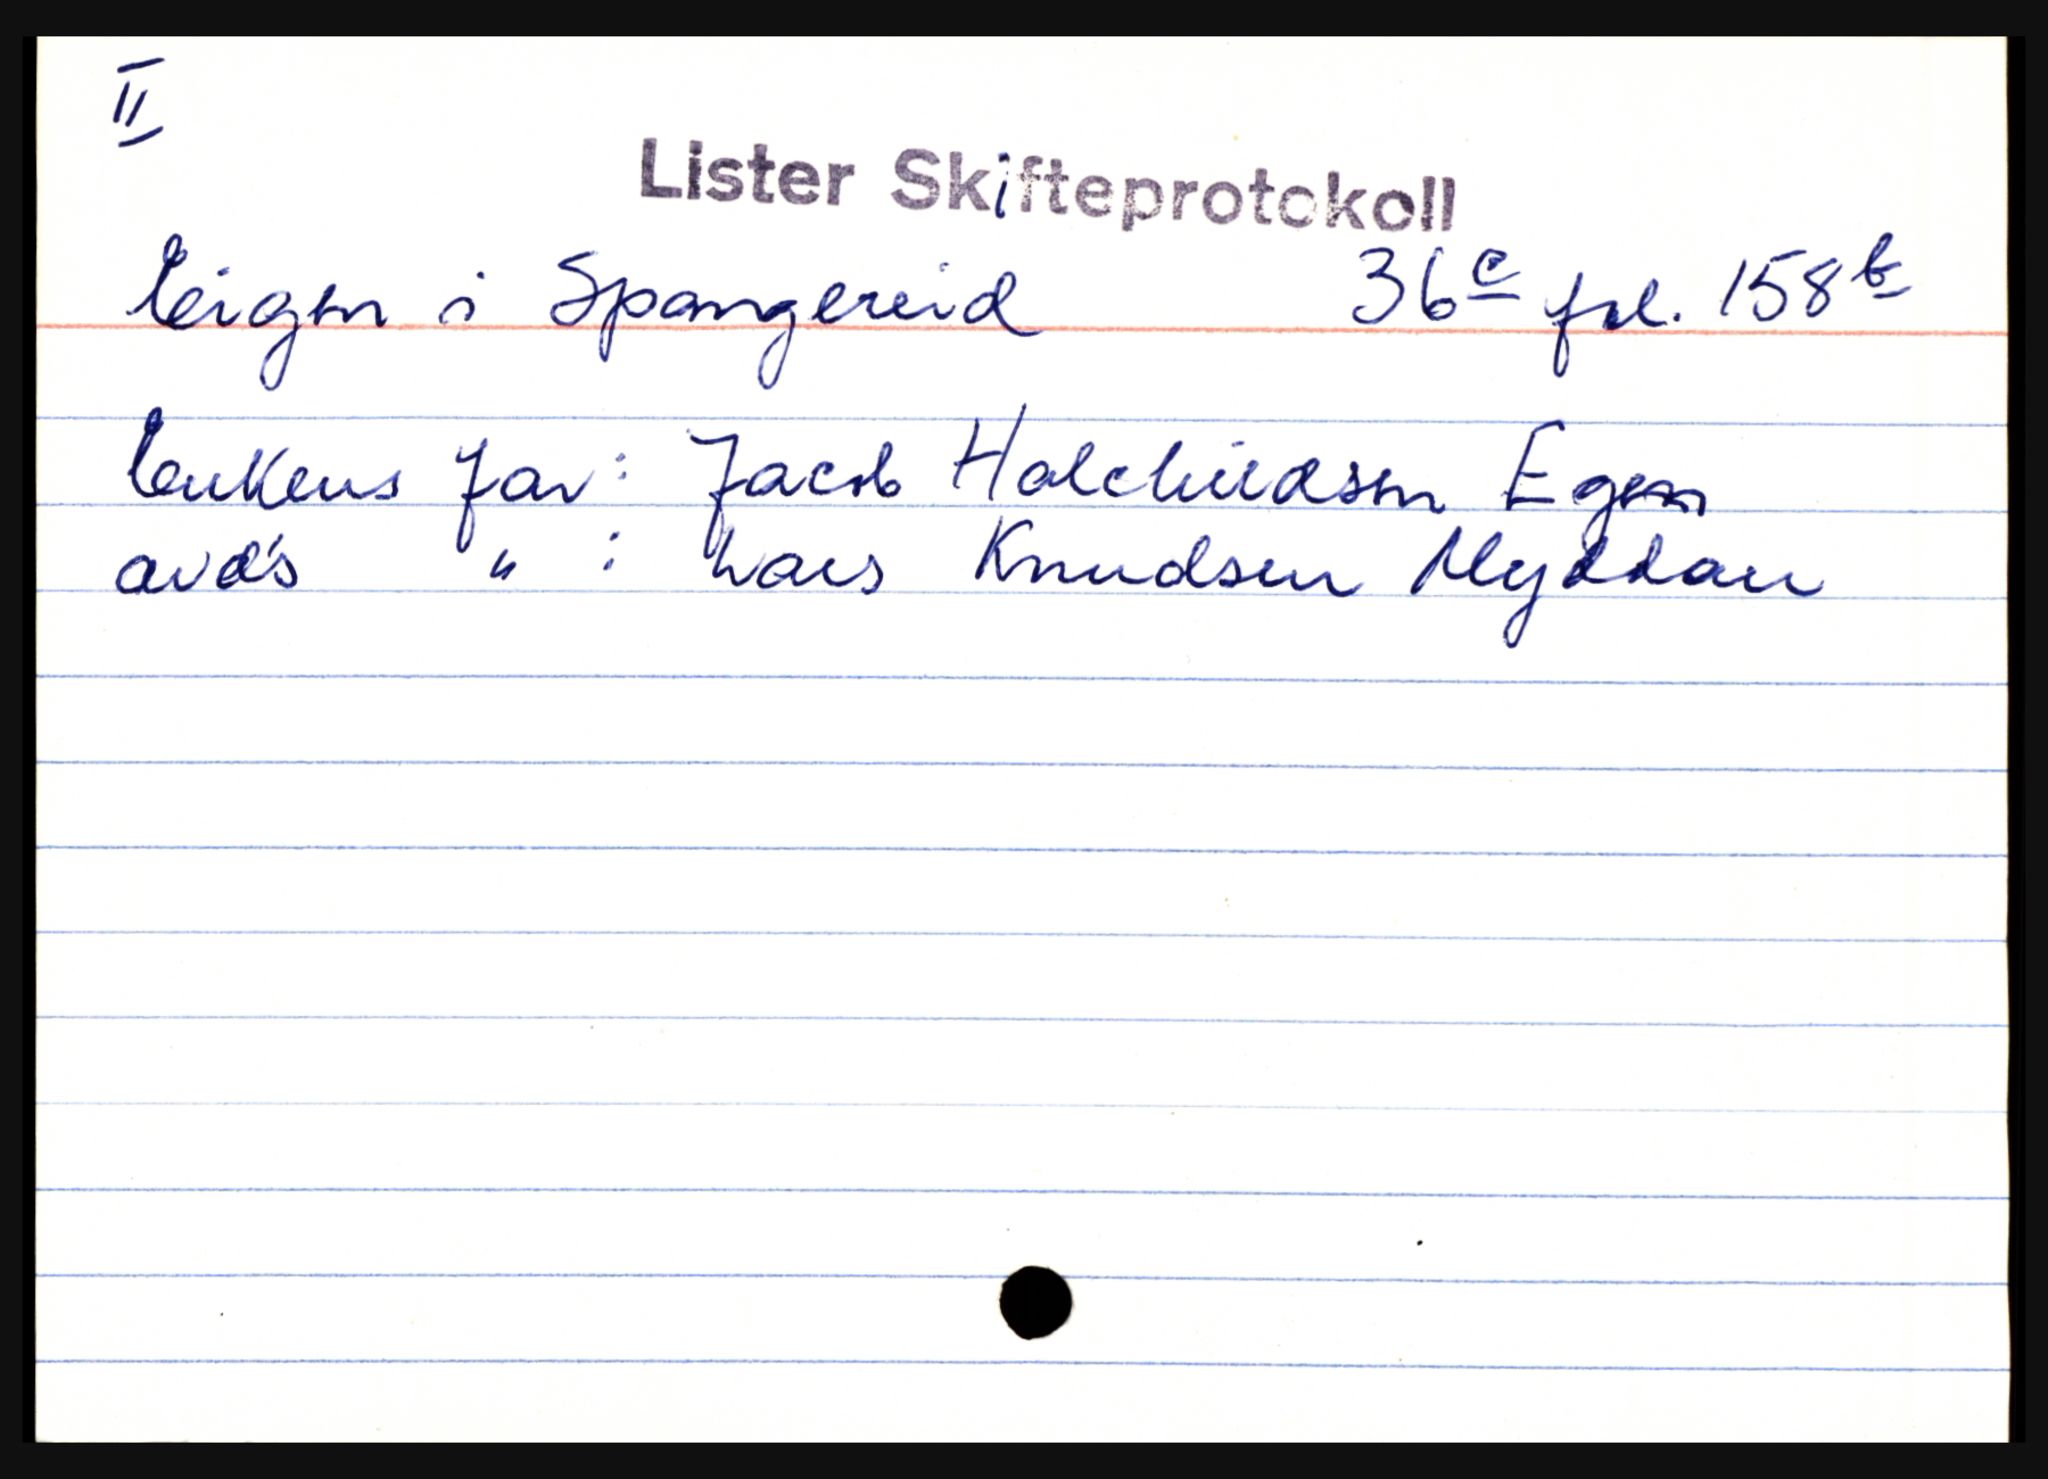 II
Lister Skifteprotokoll
Eigen i Spangereid 36c fol. 158b
Enkens far: Jacob Halchieldsen Egen
avd's " : Lars Knudsen Myddan